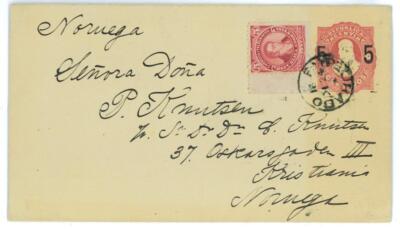 Noruega
Señora Doña
P. Knutsen
p. Sr. Dr. Dn. L. Knutsen
37. Oskarsgaden III
Kristiania
Noruega
5 5